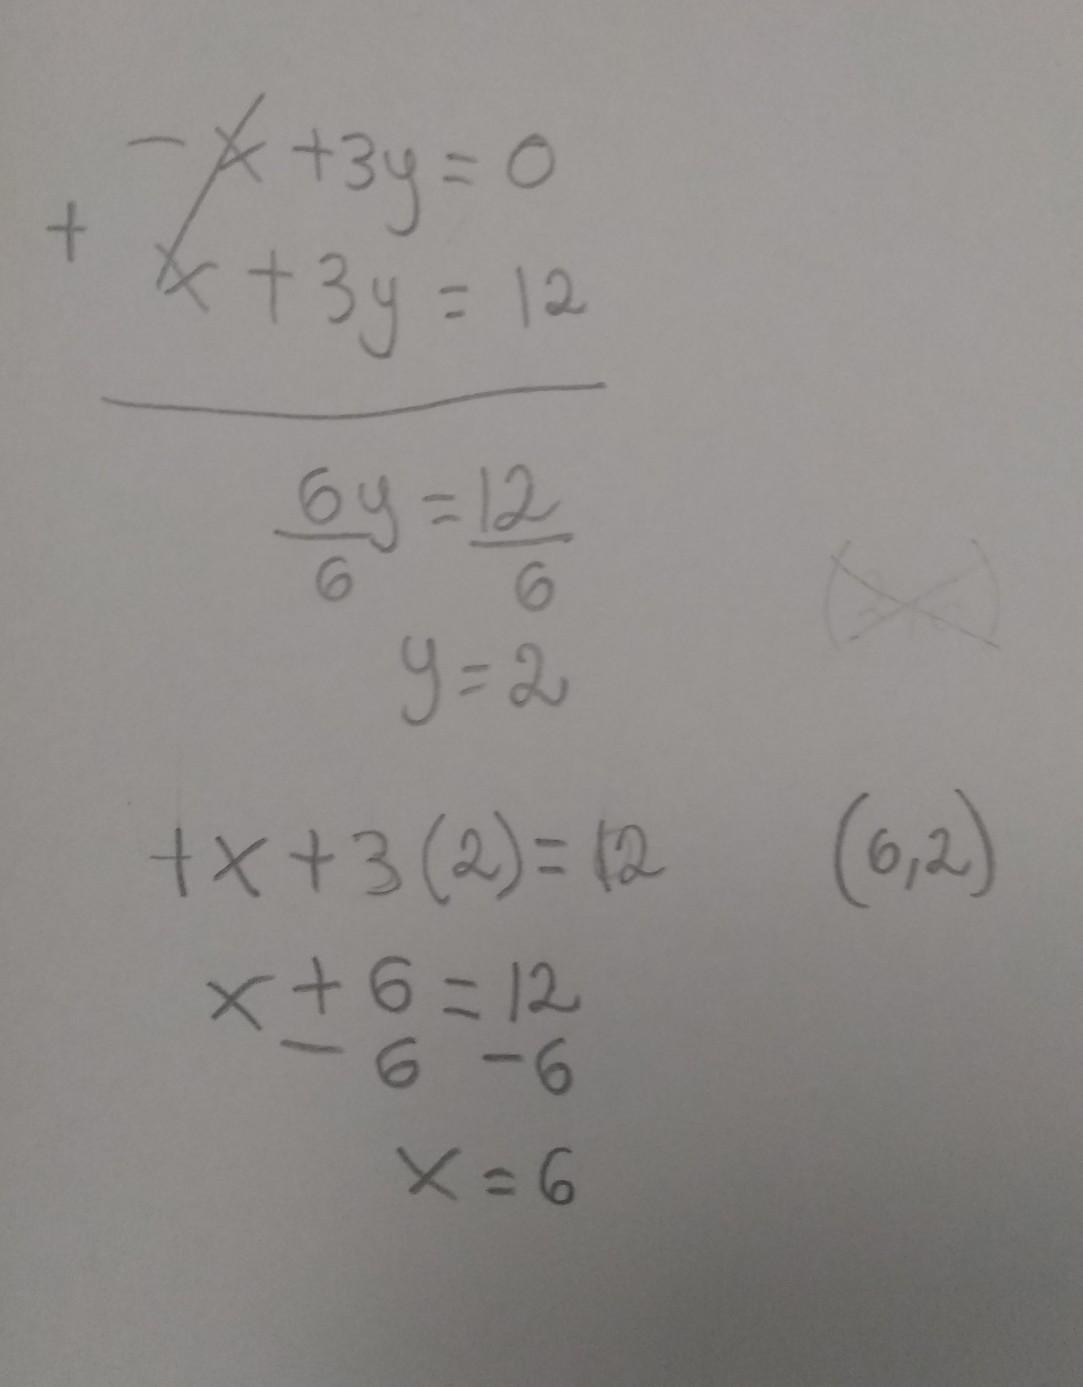 -x +3y = 0
+
x + 3y = 12
6y = 12
6 6
y = 2
+x + 3(2) = 12
(6,2)
x + 6 = 12
- 6 -6
x = 6